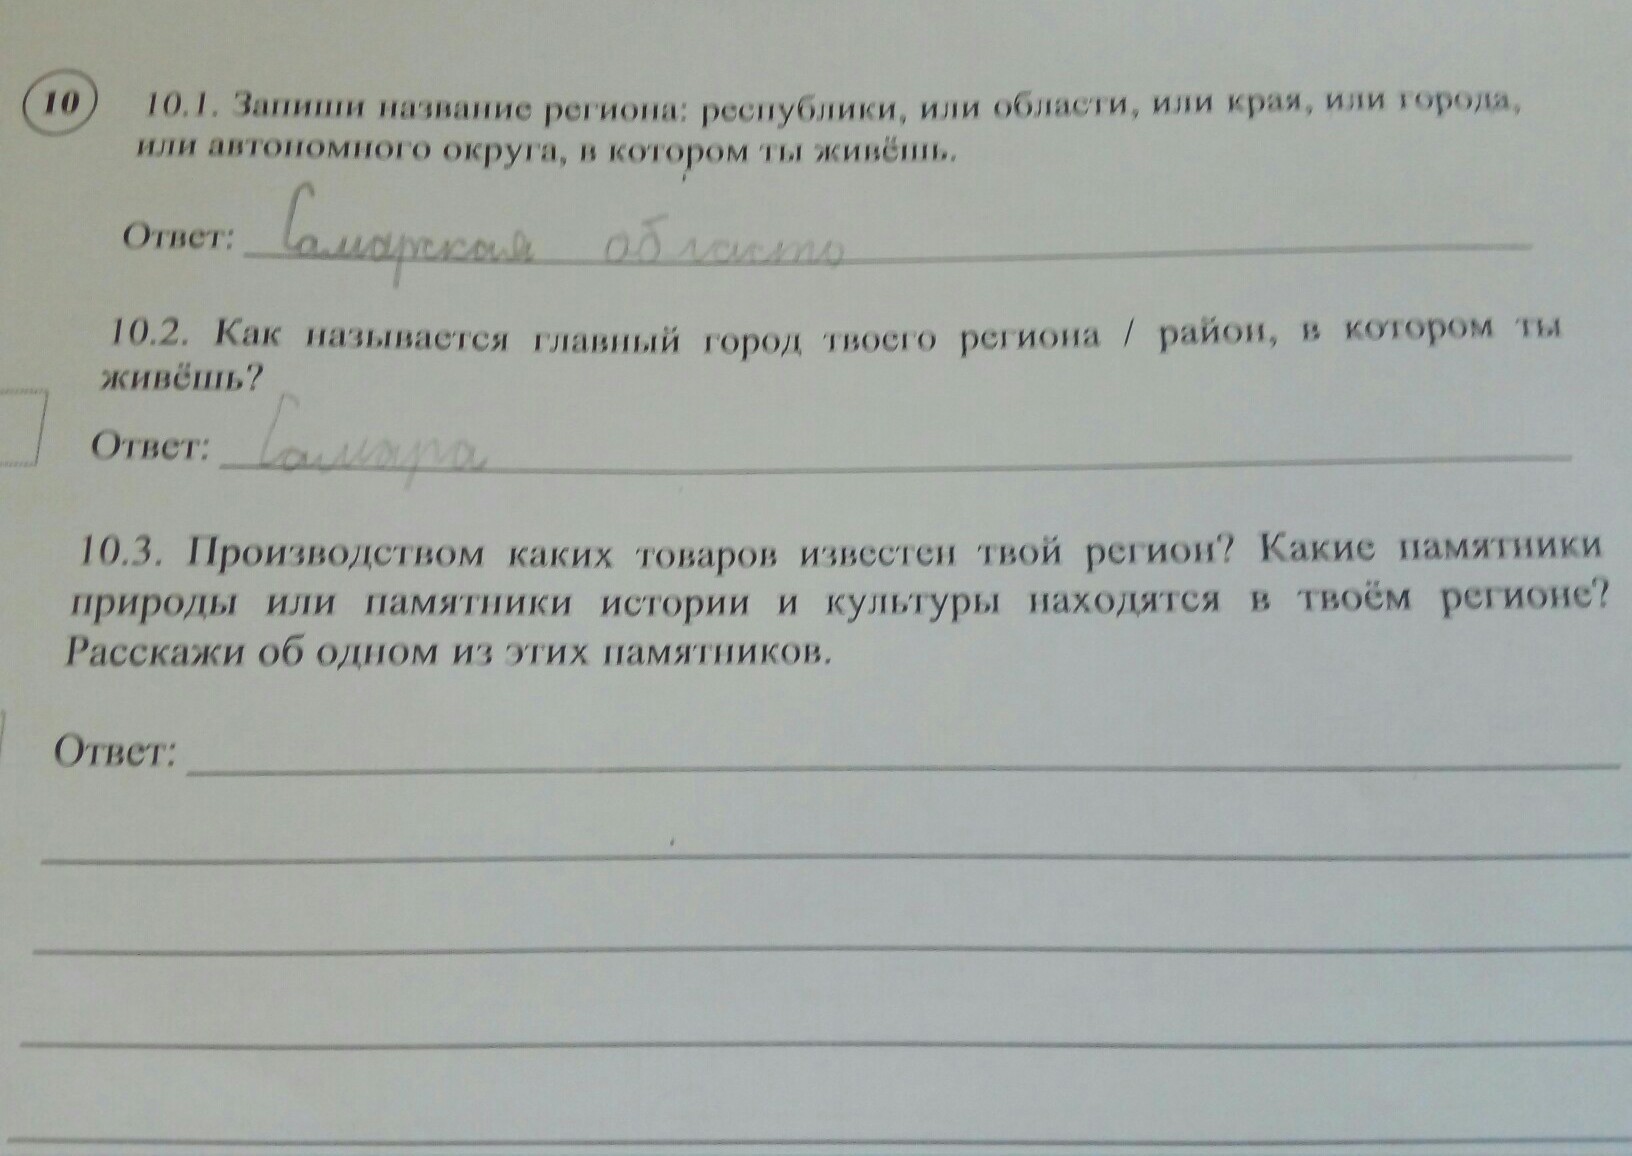 10
10.1. Запиши название региона: республики, или области, или края, или города,
или автономного округа, в котором ты живёшь.
Ответ: Самарская область
10.2. Как называется главный город твоего региона / район, в котором ты
живёшь?
Ответ: Самара
10.3. Производством каких товаров известен твой регион? Какие памятники
природы или памятники истории и культуры находятся в твоём регионе?
Расскажи об одном из этих памятников.
Ответ: